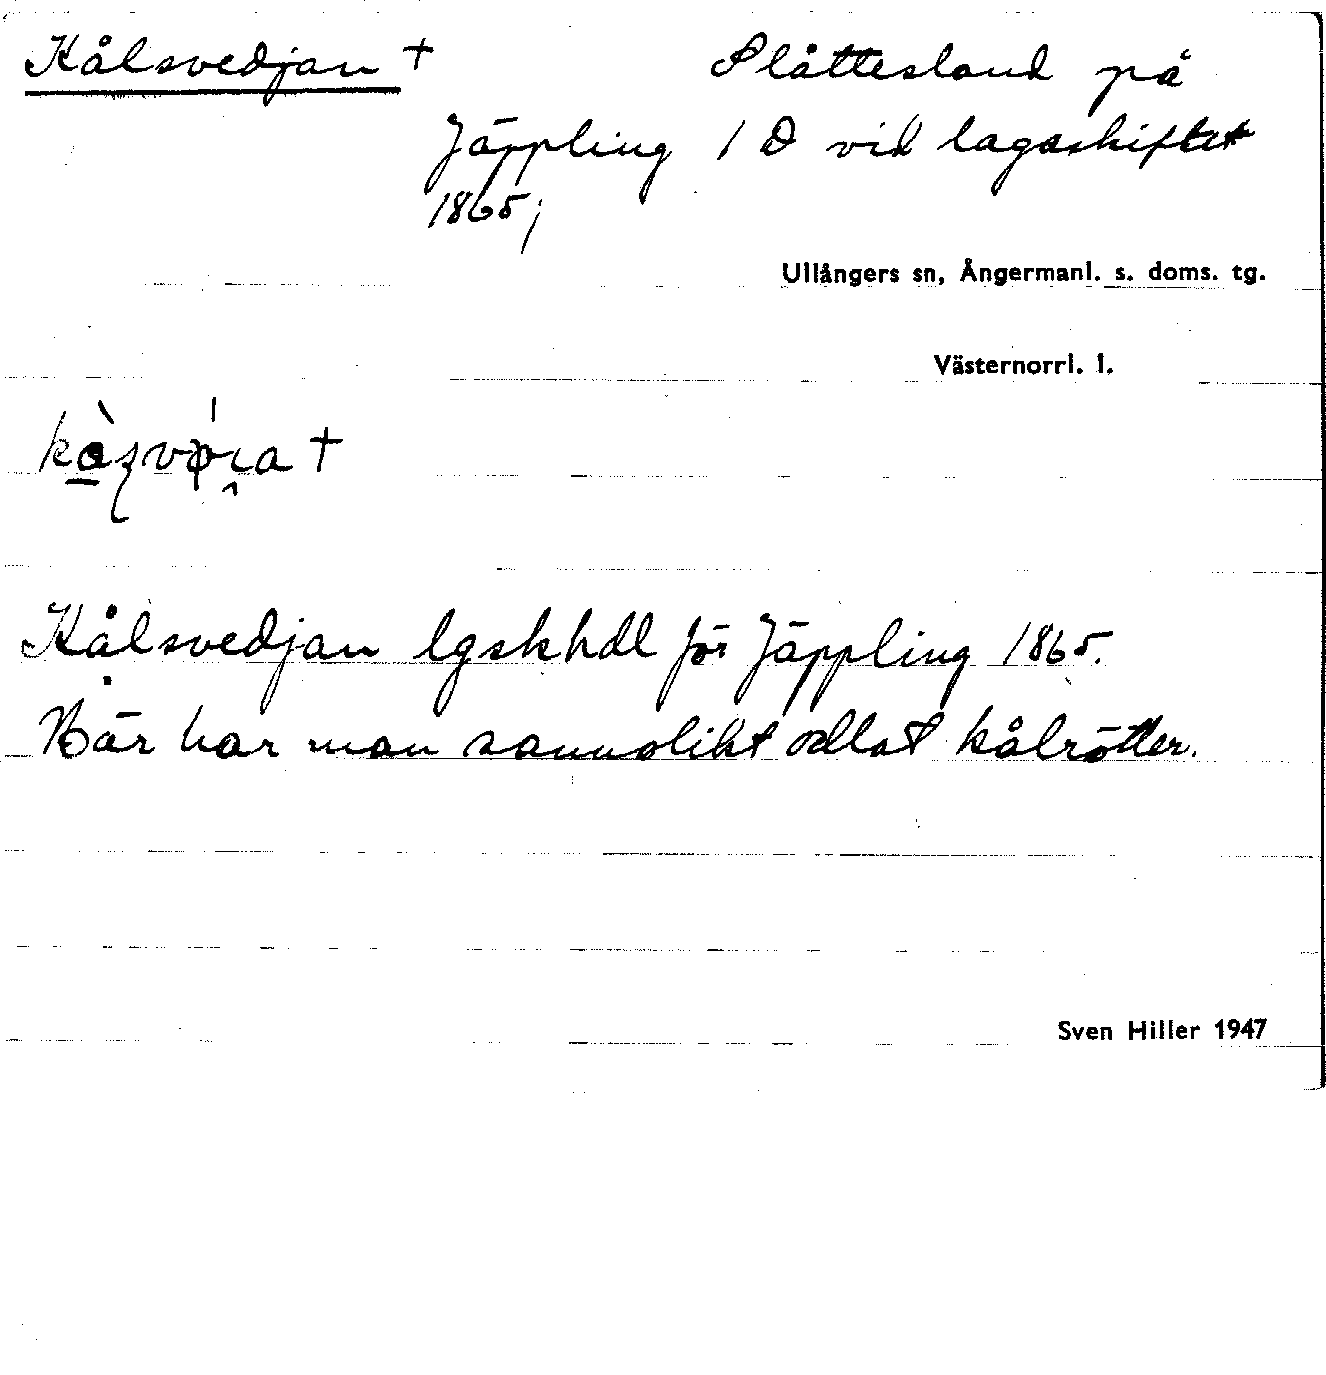 Kålsvedjan †
Slåttesland på
Jäppling 1 D vid lagaskiftet
1865;
Ullångers sn, Ångermanl. s. doms. tg.
Västernorrl. l.
Kålsvedjan lgskhdl för Jäppling 1865.
Här har man sannolikt odlat kålrötter.
Sven Hiller 1947